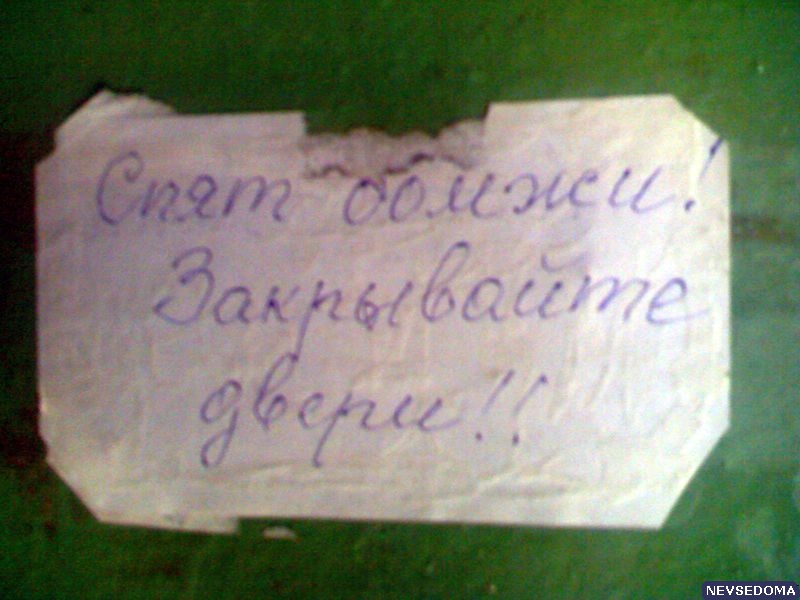 Спят бомжи!
Закрывайте
двери!!
NEVSEDOMA